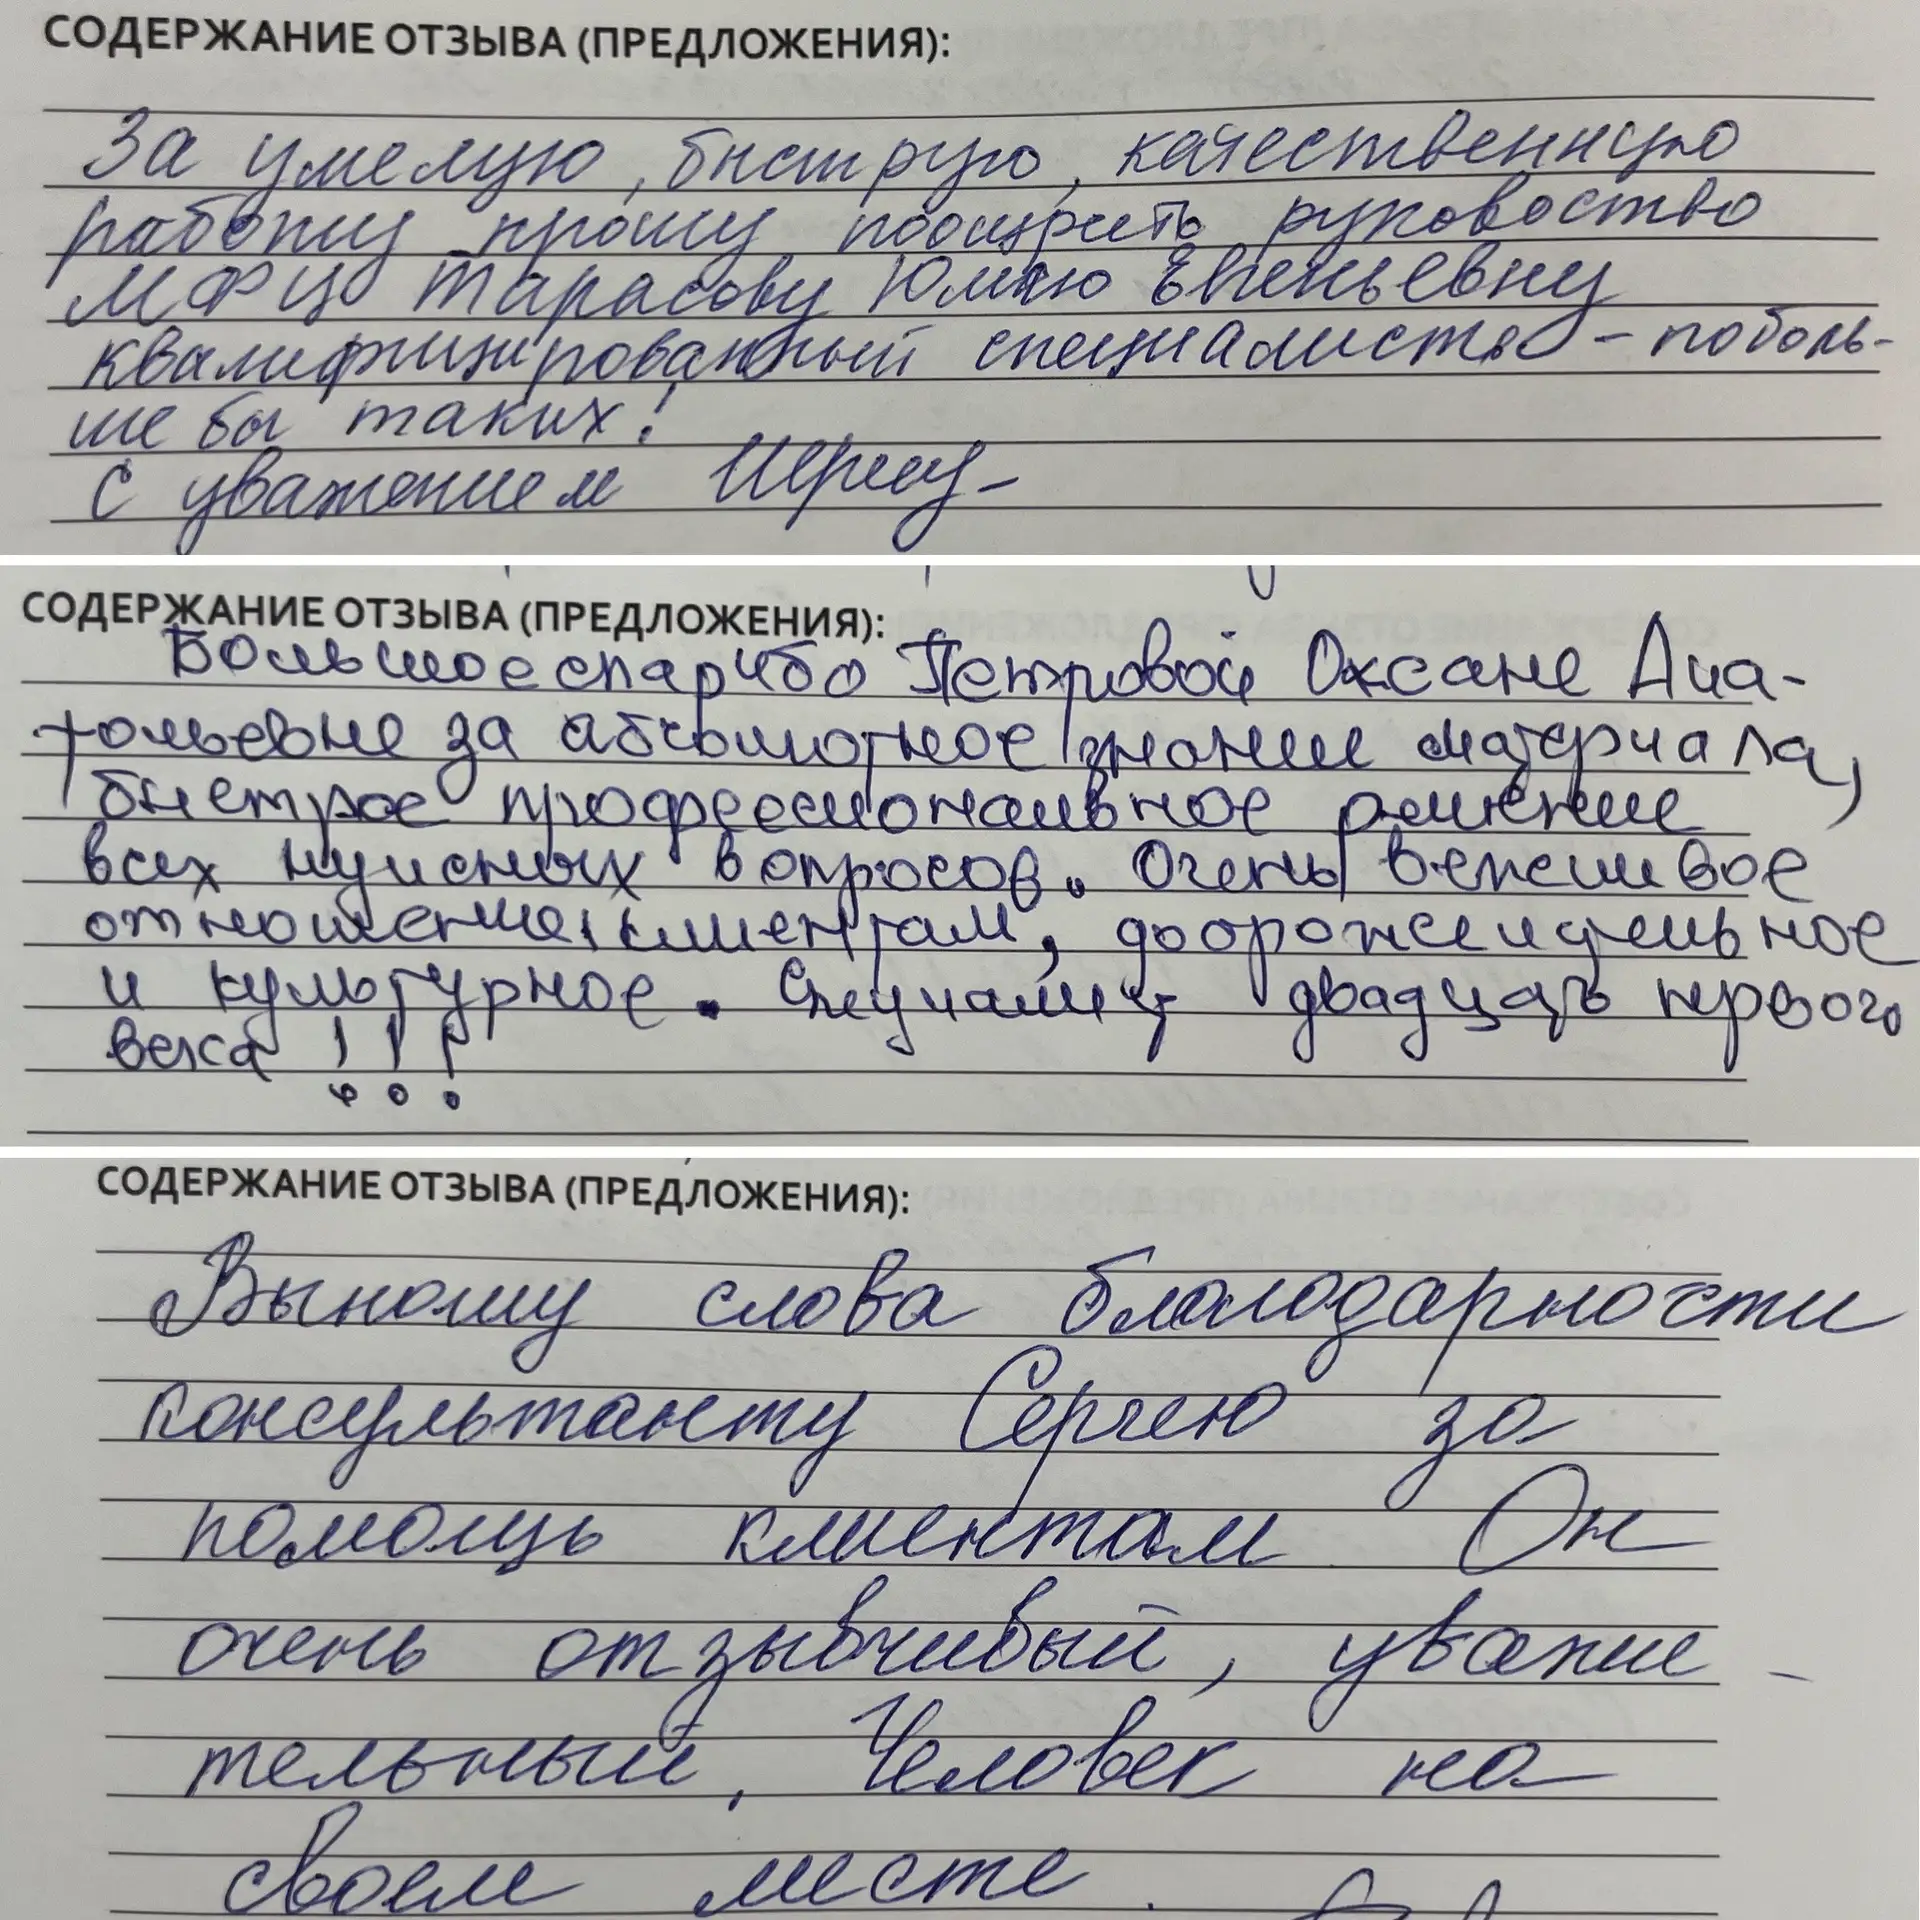 СОДЕРЖАНИЕ ОТЗЫВА (ПРЕДЛОЖЕНИЯ):
За умелую, быструю, качественную
работу прошу поощрить руковоство
МФЦ Тарасову Юлию Евгеньевну
квалифицированный специалист - поболь-
ше бы таких!
С уважением
СОДЕРЖАНИЕ ОТЗЫВА (ПРЕДЛОЖЕНИЯ):
Большое спасибо Петровой Оксане Ана-
тольевне за абсолютное знание материала,
быстрое профессиональное решение
всех нужных вопросов. Очень вежливое
отношение к клиентам, доброжелательное
и культурное. Специалист двадцать первого
века!!!
СОДЕРЖАНИЕ ОТЗЫВА (ПРЕДЛОЖЕНИЯ):
Выношу слова благодарности
консультанту Сергею за
помощь клиентам. Он
очень отзывчивый, уважи-
тельный, Человек на
своем месте.